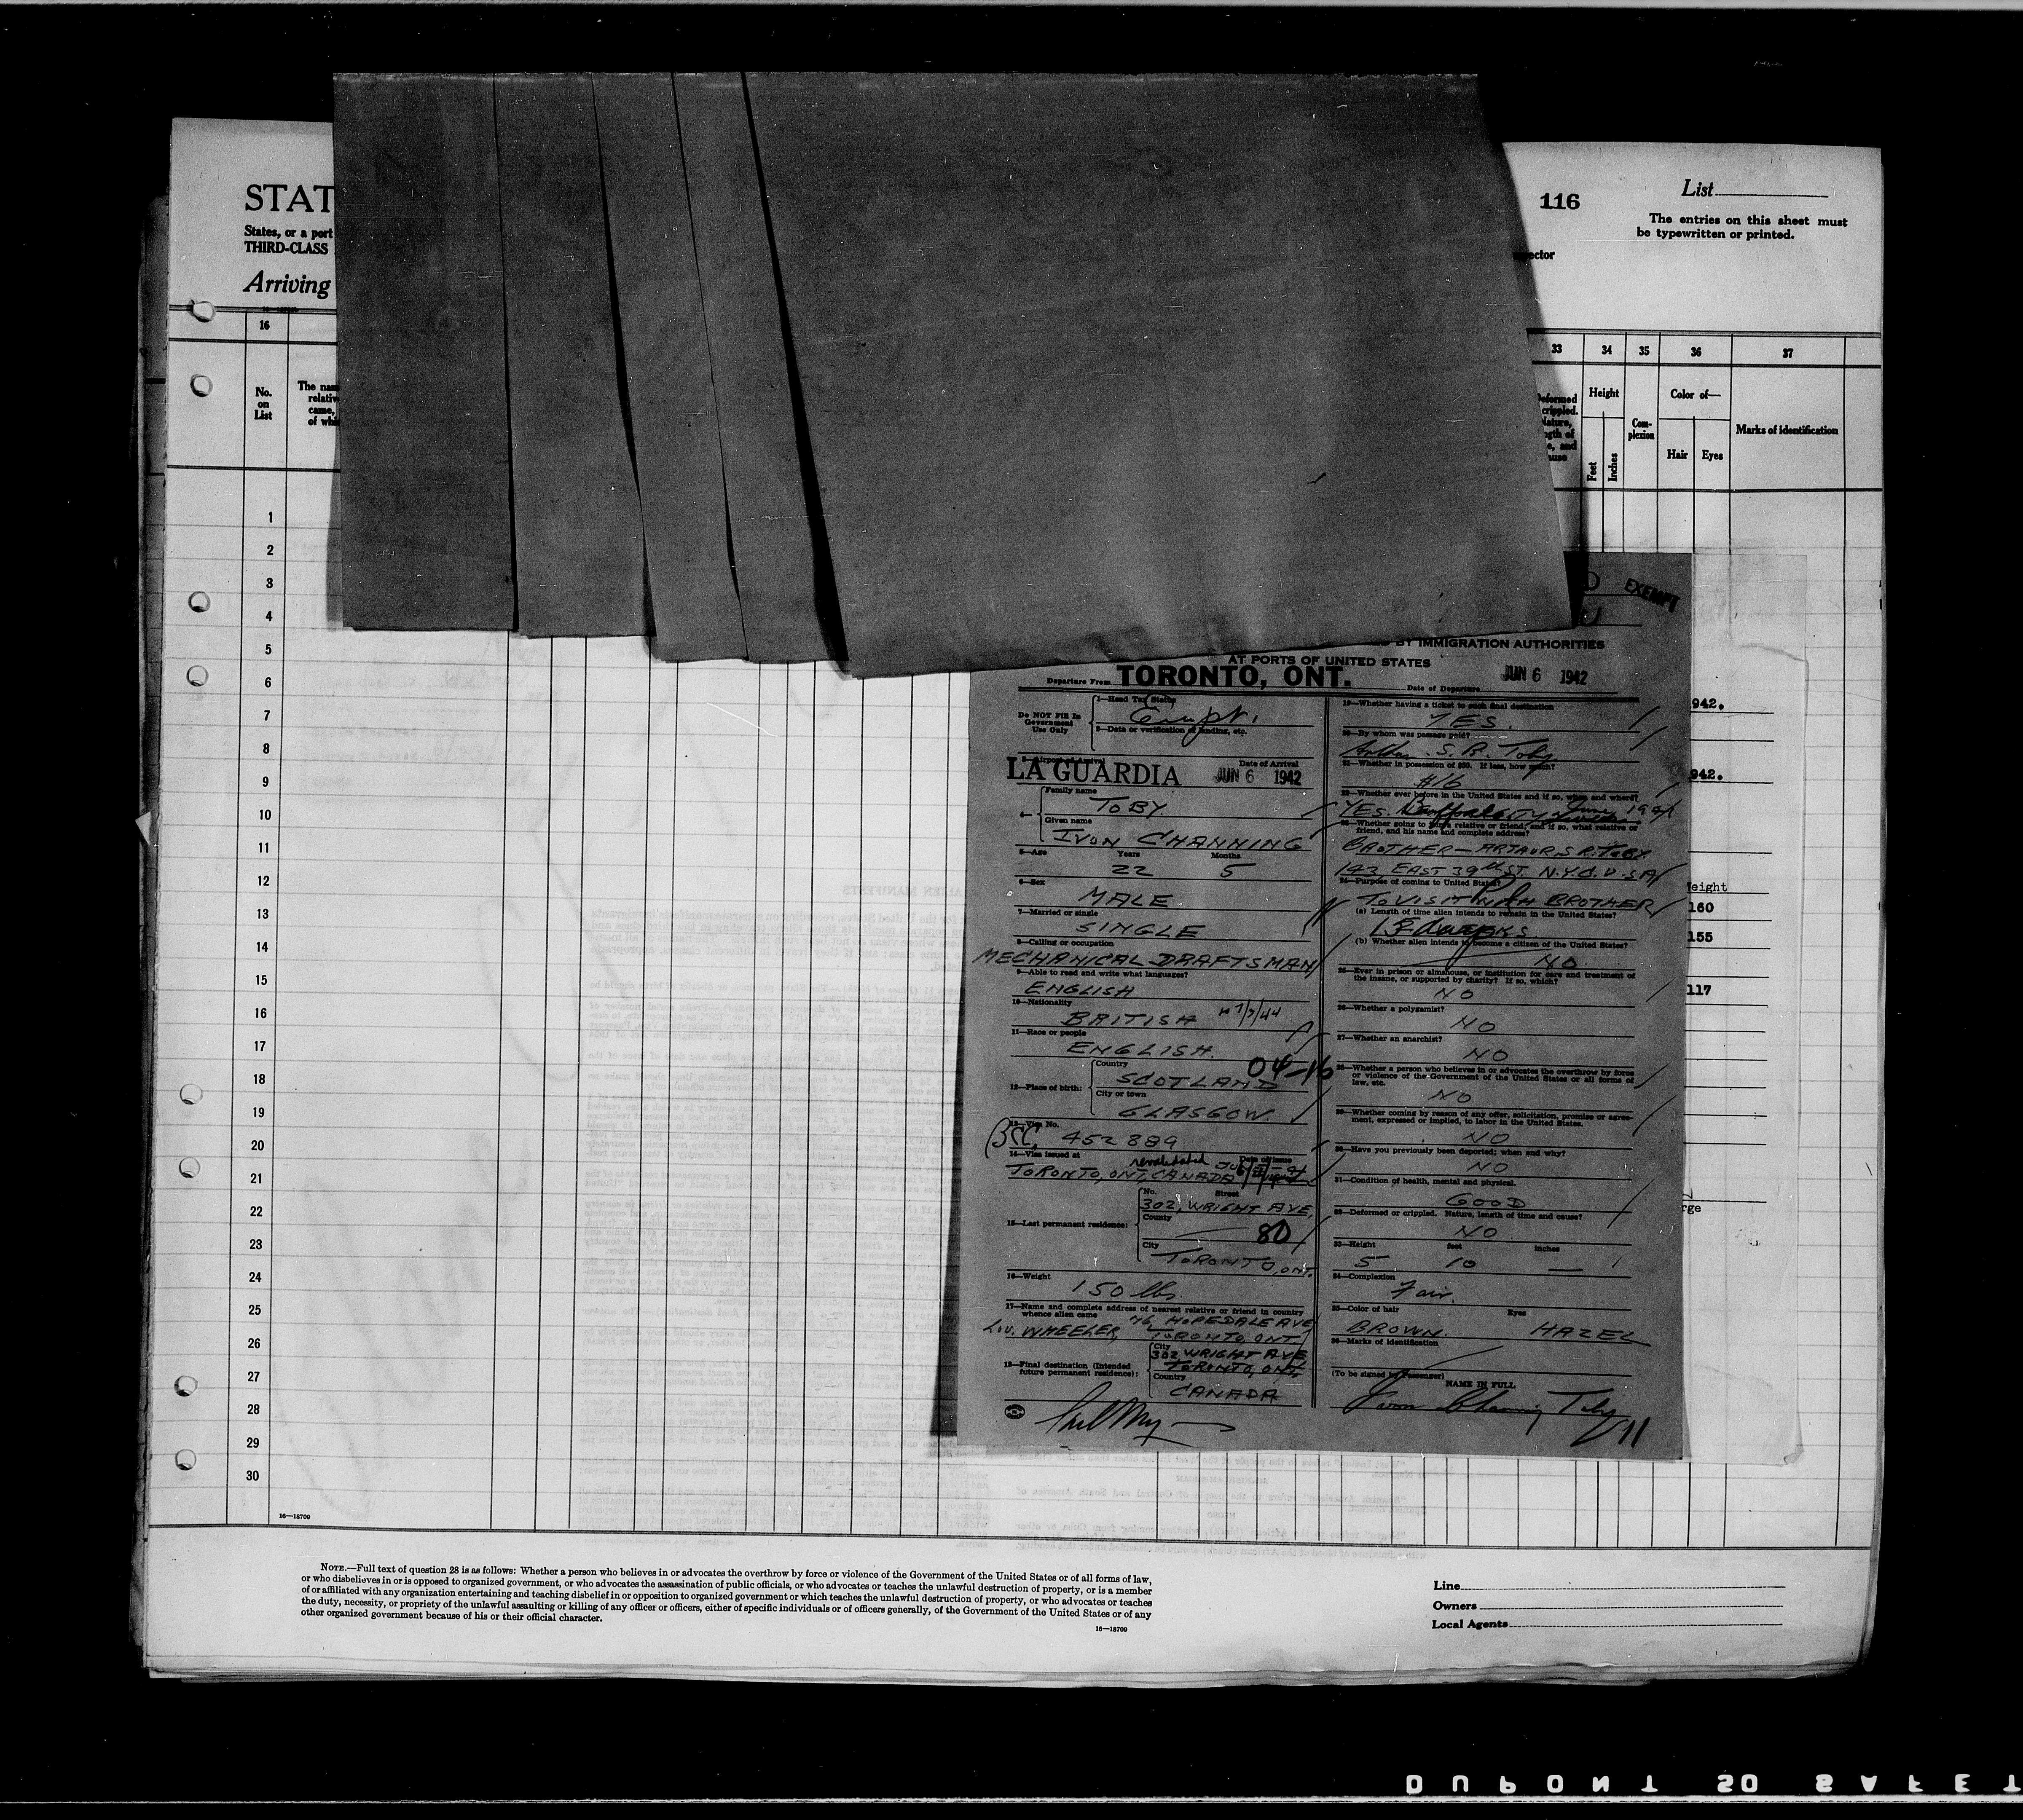 STAT
States, or a port
THIRD-CLASS
Arriving
116
List
The entries on this sheet must
be typewritten or printed.
16
No.
on
List
The nam
relativ
came,
of whi
33
34
35
36
37
Deformed
crippled.
Nature,
ngth of
e, and
ause
Height
Feet
Inches
Com-
plexion
Color of—
Hair
Eyes
Marks of identification
1
2
3
4
5
6
7
8
9
10
11
12
13
14
15
16
17
18
19
20
21
22
23
24
25
26
27
28
29
30
EXEMPT
BY IMMIGRATION AUTHORITIES
AT PORTS OF UNITED STATES
Departure From TORONTO, ONT.
Date of Departure JUN 6 1942
Do NOT Fill In
Government
Use Only
1—Head Tax Status
Exempt.
2—Data or verification of landing, etc.
3—Airport of Arrival
Date of Arrival
LA GUARDIA JUN 6 1942
4—
Family name
TOBY
Given name
IVON CHANNING
5—Age Years Months
22 5
6—Sex
MALE
7—Married or single
SINGLE
8—Calling or occupation
MECHANICAL DRAFTSMAN
9—Able to read and write what languages?
ENGLISH
10—Nationality
BRITISH
11—Race or people
ENGLISH.
04-16
12—Place of birth:
Country
SCOTLAND
City or town
GLASGOW.
13—Visa No.
BCC. 452889
14—Visa issued at Date of issue
revalidated
TORONTO, ONT, CANADA
15—Last permanent residence:
No. Street
302, WRIGHT AVE,
County
80
City
TORONTO, ONT.
16—Weight
150 lbs.
17—Name and complete address of nearest relative or friend in country
whence alien came
76, HOPEDALE AVE
LOU. WHEELER, TORONTO, ONT
18—Final destination (Intended
future permanent residence):
City
302 WRIGHT AVE
TORONTO, ONT.
Country
CANADA
19—Whether having a ticket to such final destination
YES.
20—By whom was passage paid?
S. R. Toby
21—Whether in possession of $50. If less, how much?
$16
22—Whether ever before in the United States and if so, when and where?
YES.
23—Whether going to join a relative or friend; and if so, what relative or
friend, and his name and complete address?
BROTHER — ARTHUR S R. TOBY.
143 EAST 39th ST. N.Y.C. U.S.A
24—Purpose of coming to United States?
TO VISIT WITH BROTHER
(a) Length of time alien intends to remain in the United States?
(b) Whether alien intends to become a citizen of the United States?
NO.
25—Ever in prison or almshouse, or institution for care and treatment of
the insane, or supported by charity? If so, which?
NO
26—Whether a polygamist?
NO
27—Whether an anarchist?
NO
28—Whether a person who believes in or advocates the overthrow by force
or violence of the Government of the United States or all forms of
law, etc.
NO
29—Whether coming by reason of any offer, solicitation, promise or agree-
ment, expressed or implied, to labor in the United States.
NO
30—Have you previously been deported; when and why?
NO
31—Condition of health, mental and physical.
GOOD
32—Deformed or crippled. Nature, length of time and cause?
NO
33—Height feet inches
5 10
34—Complexion
Fair.
35—Color of hair Eyes
BROWN. HAZEL
36—Marks of identification
(To be signed by Passenger)
NAME IN FULL
Ivon Channing Toby
942.
942.
eight
160
155
117
rge
16—18709
NOTE.—Full text of question 28 is as follows: Whether a person who believes in or advocates the overthrow by force or violence of the Government of the United States or of all forms of law,
or who disbelieves in or is opposed to organized government, or who advocates the assassination of public officials, or who advocates or teaches the unlawful destruction of property, or is a member
of or affiliated with any organization entertaining and teaching disbelief in or opposition to organized government or which teaches the unlawful destruction of property, or who advocates or teaches
the duty, necessity, or propriety of the unlawful assaulting or killing of any officer or officers, either of specific individuals or of officers generally, of the Government of the United States or of any
other organized government because of his or their official character.
16—18709
Line
Owners
Local Agents
DUPONT SO SAFET